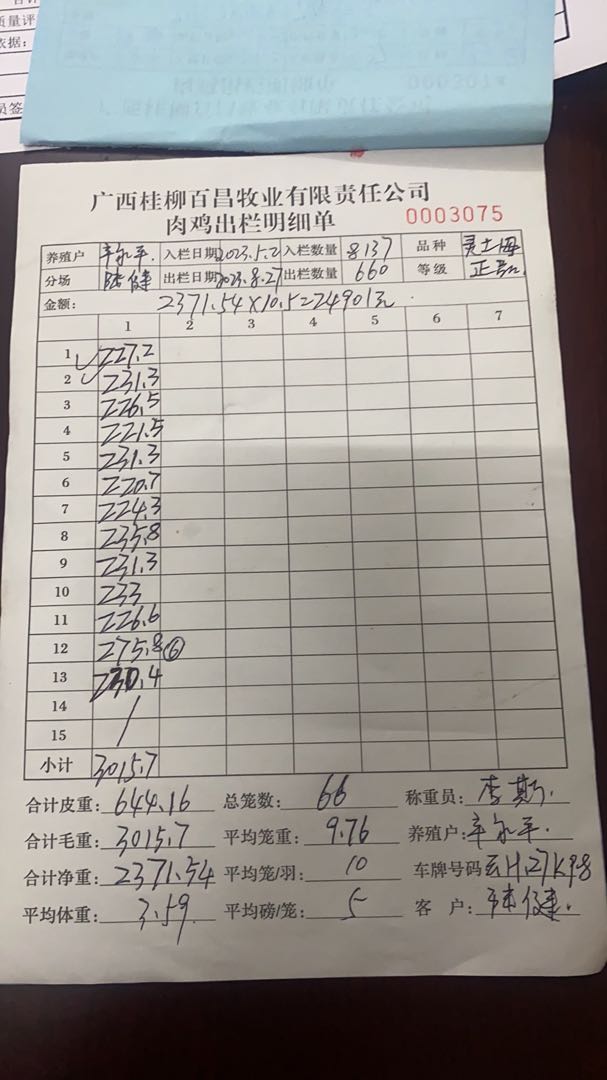 质量评
依据：
员签
广西桂柳百昌牧业有限责任公司
肉鸡出栏明细单 0003075
养殖户 入栏日期 2023.5.2 入栏数量 8137 品种 灵士
分场 陆健 出栏日期 2023.8.27 出栏数量 660 等级 正品
金额： 2371.54×10.5=24901元
1 2 3 4 5 6 7
1 227.2
2 231.3
3 226.5
4 221.5
5 231.3
6 220.7
7 224.3
8 235.8
9 231.3
10 233
11 226.6
12 275.8 ⑥
13 230.4
14 /
15
小计 3015.7
合计皮重： 644.16 总笼数： 66 称重员： 李斯
合计毛重： 3015.7 平均笼重： 9.76 养殖户：
合计净重： 2371.54 平均笼/羽： 10 车牌号码 云H.27K98
平均体重： 3.59 平均磅/笼： 5 客 户： 陆健